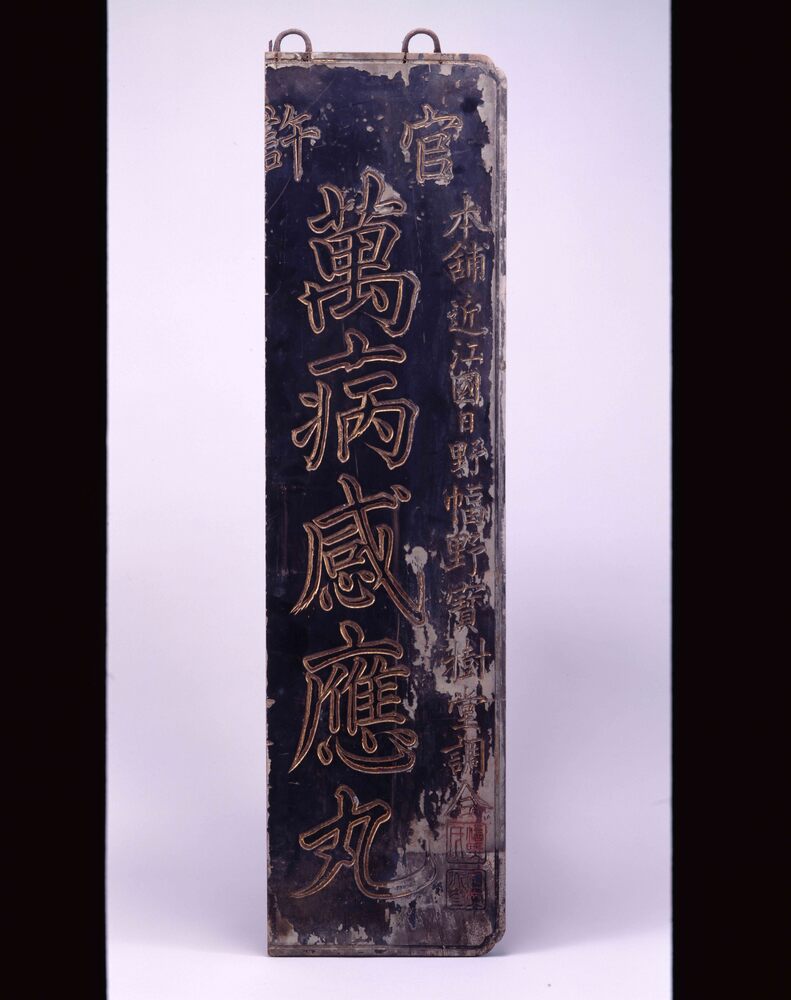 官許
本舗近江國日野幅野寳樹堂調合
萬病感應丸